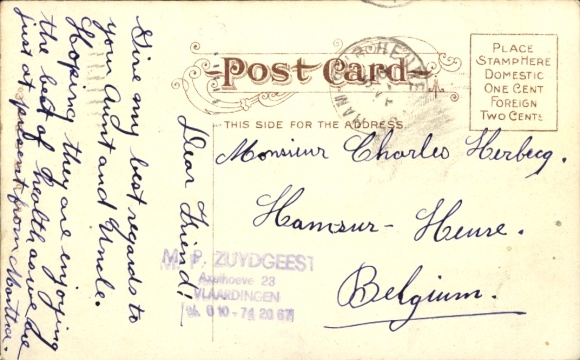 Post Card
PLACE
STAMP HERE
DOMESTIC
ONE CENT
FOREIGN
TWO CENTS
THIS SIDE FOR THE ADDRESS
Monsieur Charles Herbecq.
Hamsur-Heure.
Belgium.
Dear Friend!
Give my best regards to
your Aunt and Uncle.
Hoping they are enjoying
the best of health as we are
just at present from Martha.
M. P. ZUYDGEEST
23
VLAARDINGEN
tel. 010-74 20 67